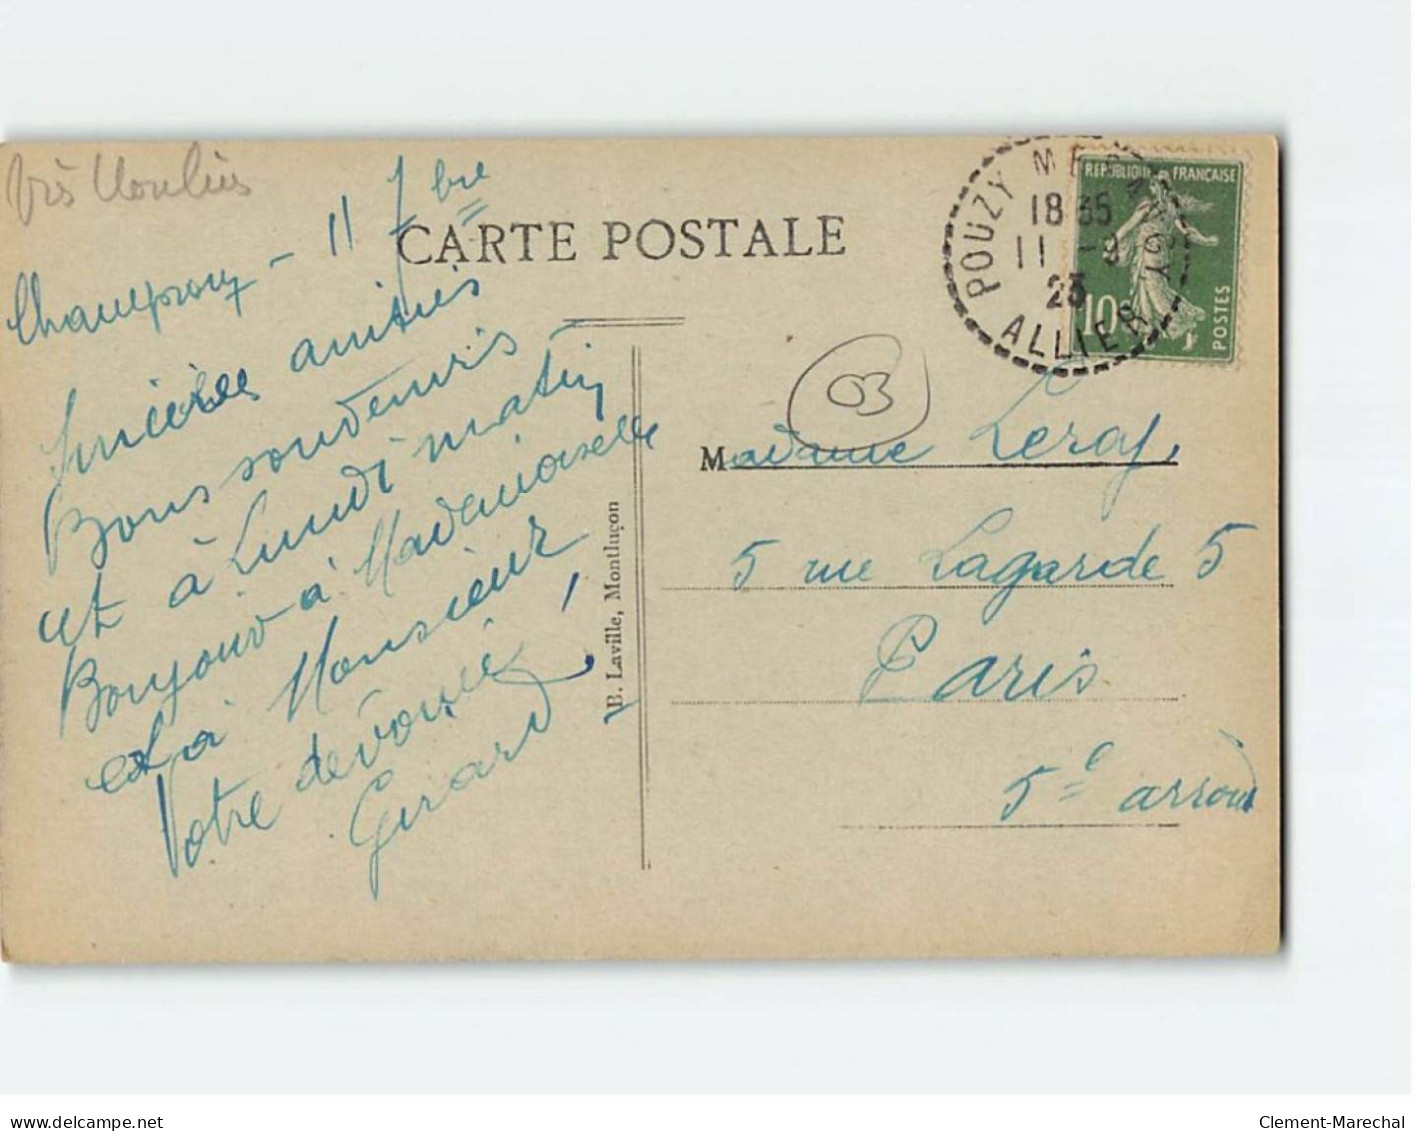 Près Moulins
Champroux - 11 7bre
CARTE POSTALE
Sincères amitiés
Bons souvenirs
et à Lundi matin
Bonjour à Mademoiselle
et à Monsieur
Votre dévouée
Girard
B. Laville, Montluçon
POUZY MESANGY
18 35
11 - 9
23
ALLIER
REPUBLIQUE FRANÇAISE
10c
POSTES
03
Madame Leroy,
5 rue Lagarde 5
Paris
5e arrond
delcampe.net
Clement-Marechal